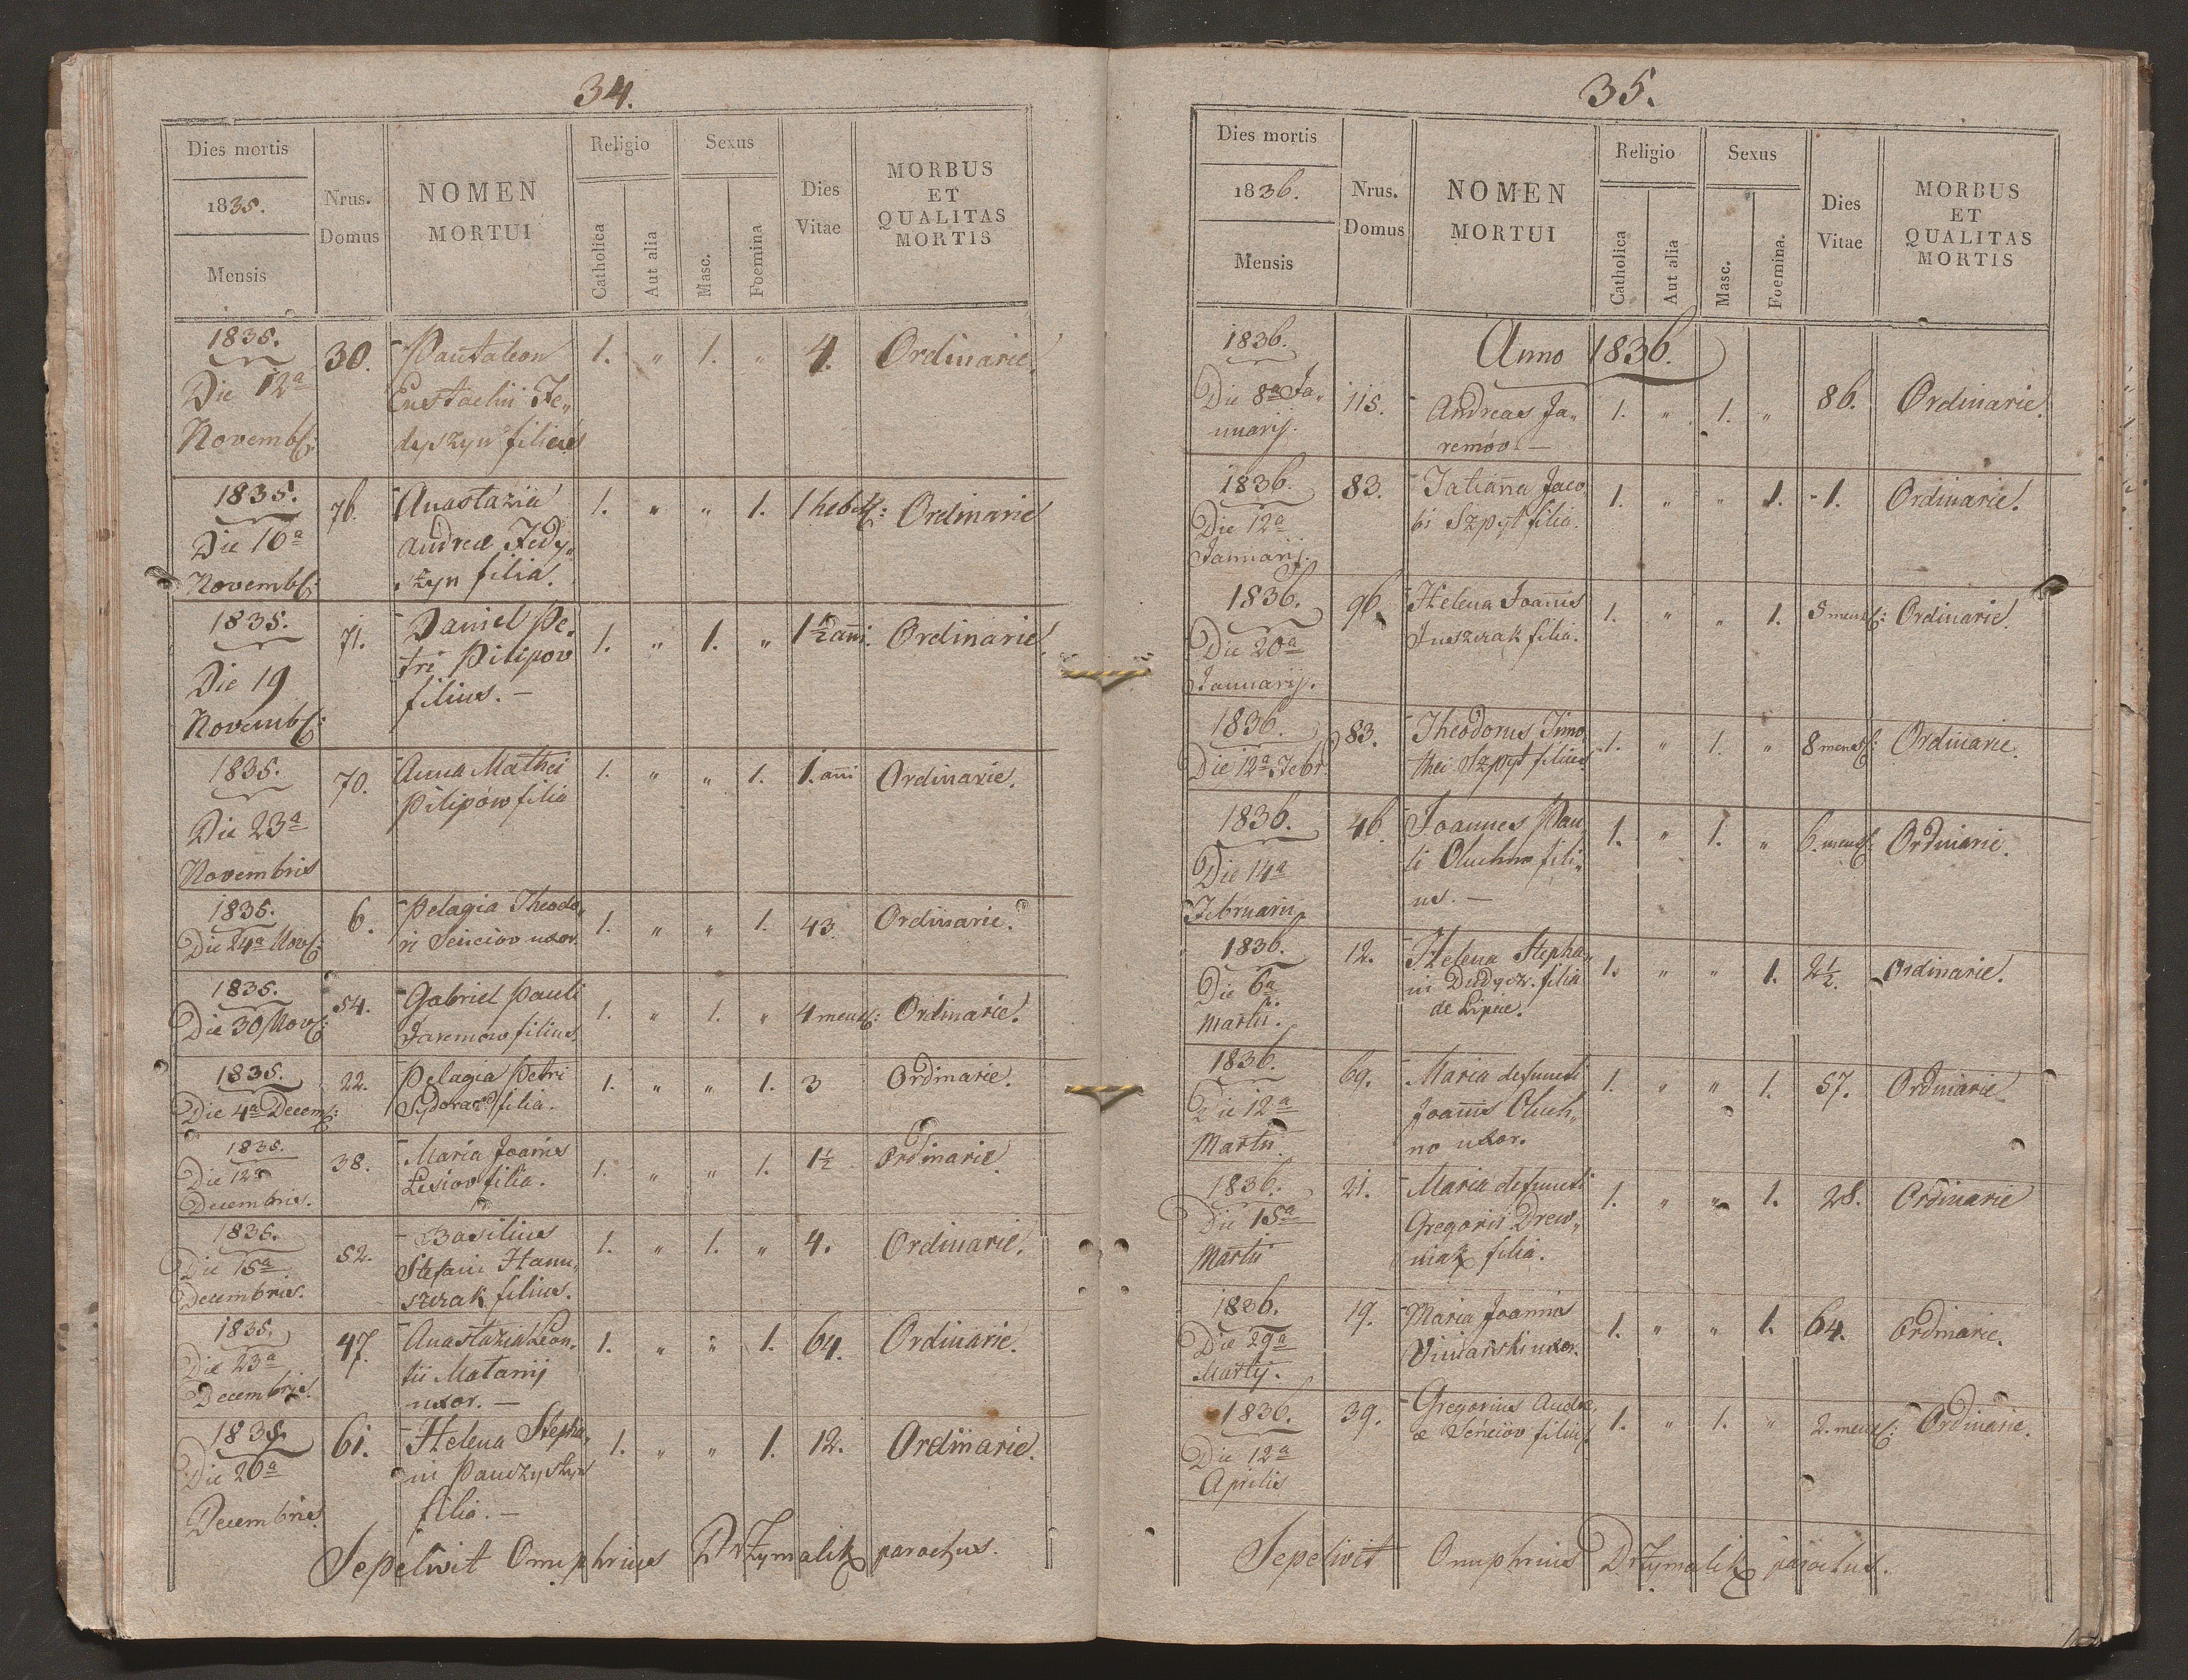 34.
Dies mortis
1835.
Mensis
Nrus. Domus
NOMEN MORTUI
Religio
Catholica
Aut alia
Sexus
Masc.
Foemina
Dies Vitae
MORBUS ET QUALITAS MORTIS
1835. 30. Pantaleon 1. " 1. " 4. Ordinarie.
Die 12a Eustachii Fe„
Novemb: dyszyn filius
1835. 76. Anastazia 1. " " 1. 1 hebd: Ordinarie
Die 16a Andreae Fedy„
Novemb: szyn filia.
1835. 71. Daniel Pe„ 1. " 1. " 1½ ani. Ordinarie.
Die 19 tri Pilipov
Novemb: filius. —
1835. 70. Anna Mathei 1. " " 1. 1. ani Ordinarie.
Die 23a Pilipów filia
Novembris
1835. 6. Pelagia Theodo„ 1. " " 1. 43. Ordinarie.
Die 24a Nov: ri Seńciov uxor.
1835. 54. Gabriel Pauli 1. " 1. " 4 mens: Ordinarie.
Die 30 Nov: Jaremow filius.
1835. 22. Pelagia Petri 1. " " 1. 3 Ordinarie.
Die 4a Decem: Sydorak filia.
1835. 38. Maria Joanis 1. " " 1. 1½ Ordinarie.
Die 12a Lesiov filia.
Decembris.
1835. 52. Basilius 1. " 1. " 4. Ordinarie.
Die 15a Stefani Hanu„
Decembris. szczak filius.
1835. 47. Anastazia Leon„ 1. " " 1. 64. Ordinarie.
Die 23a tii Matanij
Decembris. uxor. —
1835. 61. Helena Stepha„ 1. " " 1. 12. Ordinarie.
Die 26a ni Panczyszyn
Decembris. filia. —
Sepelivit Onuphrius Drzymalik parochus.
35.
Dies mortis
1836.
Mensis
Nrus. Domus
NOMEN MORTUI
Religio
Catholica
Aut alia
Sexus
Masc.
Foemina.
Dies Vitae
MORBUS ET QUALITAS MORTIS
1836. Anno 1836.
Die 8a Ja„ 115. Andreas Ja„ 1. " 1. " 86. Ordinarie.
nuarij. remóv. —
1836. 83. Tatianna Jaco„ 1. " " 1. 1. Ordinarie.
Die 12a bi Szpyt filia.
Januarij.
1836. 96. Helena Joannis 1. " " 1. 5 mens: Ordinarie.
Die 20a filia.
Januarij.
1836. 83. Theodorus Timo„ 1. " 1. " 8 mens: Ordinarie.
Die 12a Febr. thei Szpyt filius
1836. 46. Joannes Pau„ 1. " 1. " 6. mens: Ordinarie.
Die 14a li Oluchno fili„
Februarii us. —
1836. 12. Helena Stepha„ 1. " " 1. 2½. Ordinarie.
Die 6a ni Dudycz. filia
Martii. de Lipie.
1836. 69. Maria defuncti 1. " " 1. 57. Ordinarie
Die 12a Joannis Oluch„
Martii. no uxor.
1836. 21. Maria defuncti 1. " " 1. 28. Ordinarie
Die 15a Gregorii Drew„
Martii niak filia.
1836. 19. Maria Joannis 1. " " 1. 64. Ordinarie.
Die 29a Viniarski uxor.
Martij.
1836. 39. Gregorius Andre„ 1. " 1. " 2. mens: Ordinarie.
Die 12a æ Seńciov filius
Aprilis
Sepelivit Onuphrius Drzymalik parochus.